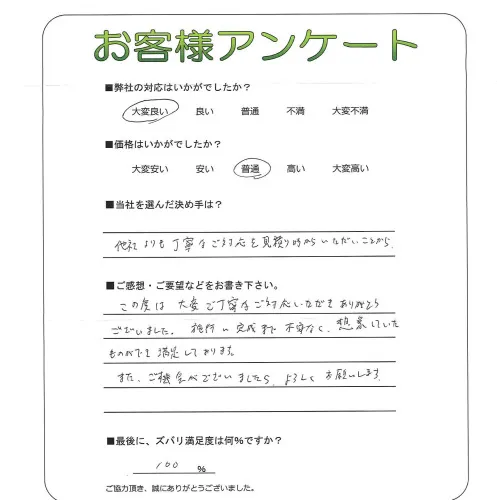 お客様アンケート
■弊社の対応はいかがでしたか？
大変良い 良い 普通 不満 大変不満
■価格はいかがでしたか？
大変安い 安い 普通 高い 大変高い
■当社を選んだ決め手は？
他社よりも丁寧なご対応を見積り時からいただいことから、
■ご感想・ご要望などをお書き下さい。
この度は 大変ご丁寧なご対応いただき ありがとう
ございました。 完成まで 不安なく、想像していた
ものができ 満足しております。
また、ご機会がございましたら、よろしく お願いします。
■最後に、ズバリ満足度は何％ですか？
100 ％
ご協力頂き、誠にありがとうございました。